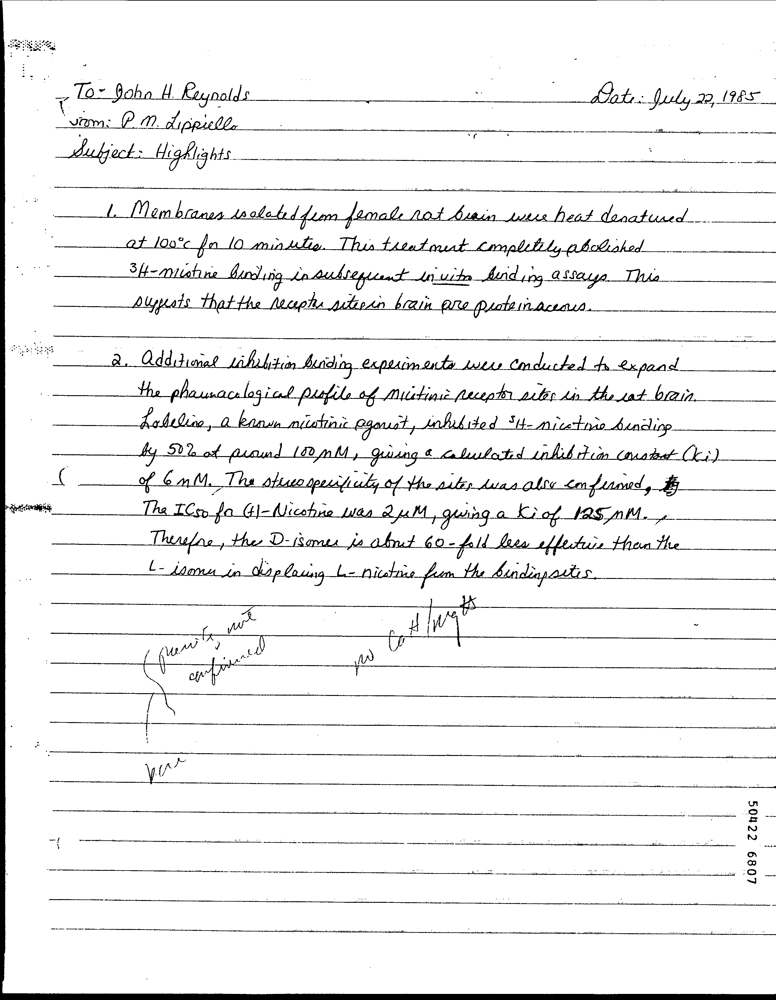 To- John H. Reynolds
Date: July 22, 1985
From: P. M. Lippiello
Subject: Highlights
1. Membranes isolated from female rat brain were heat denatured
at 100°c for 10 minutes. This treatment completely abolished
3H-nicotine binding in subsequent in vitro binding assays. This
suggests that the receptor sites in brain are proteinaceous.
2. Additional inhibition binding experiments were conducted to expand
the pharmacological profile of nicotinic receptor sites in the rat brain.
Lobeline, a known nicotinic agonist, inhibited 3H-nicotine binding
by 50% at around 100 nM, giving a calculated inhibition constant (Ki)
of 6 nM. The stereospecificity of the sites was also confirmed,
The IC50 for (+)-Nicotine was 2 µM, giving a Ki of 125 nM.
Therefore, the D-isomer is about 60-fold less effective than the
L-isomer in displacing L-nicotine from the binding sites.
not
confirmed
no Ca++/mg++
50422 6807